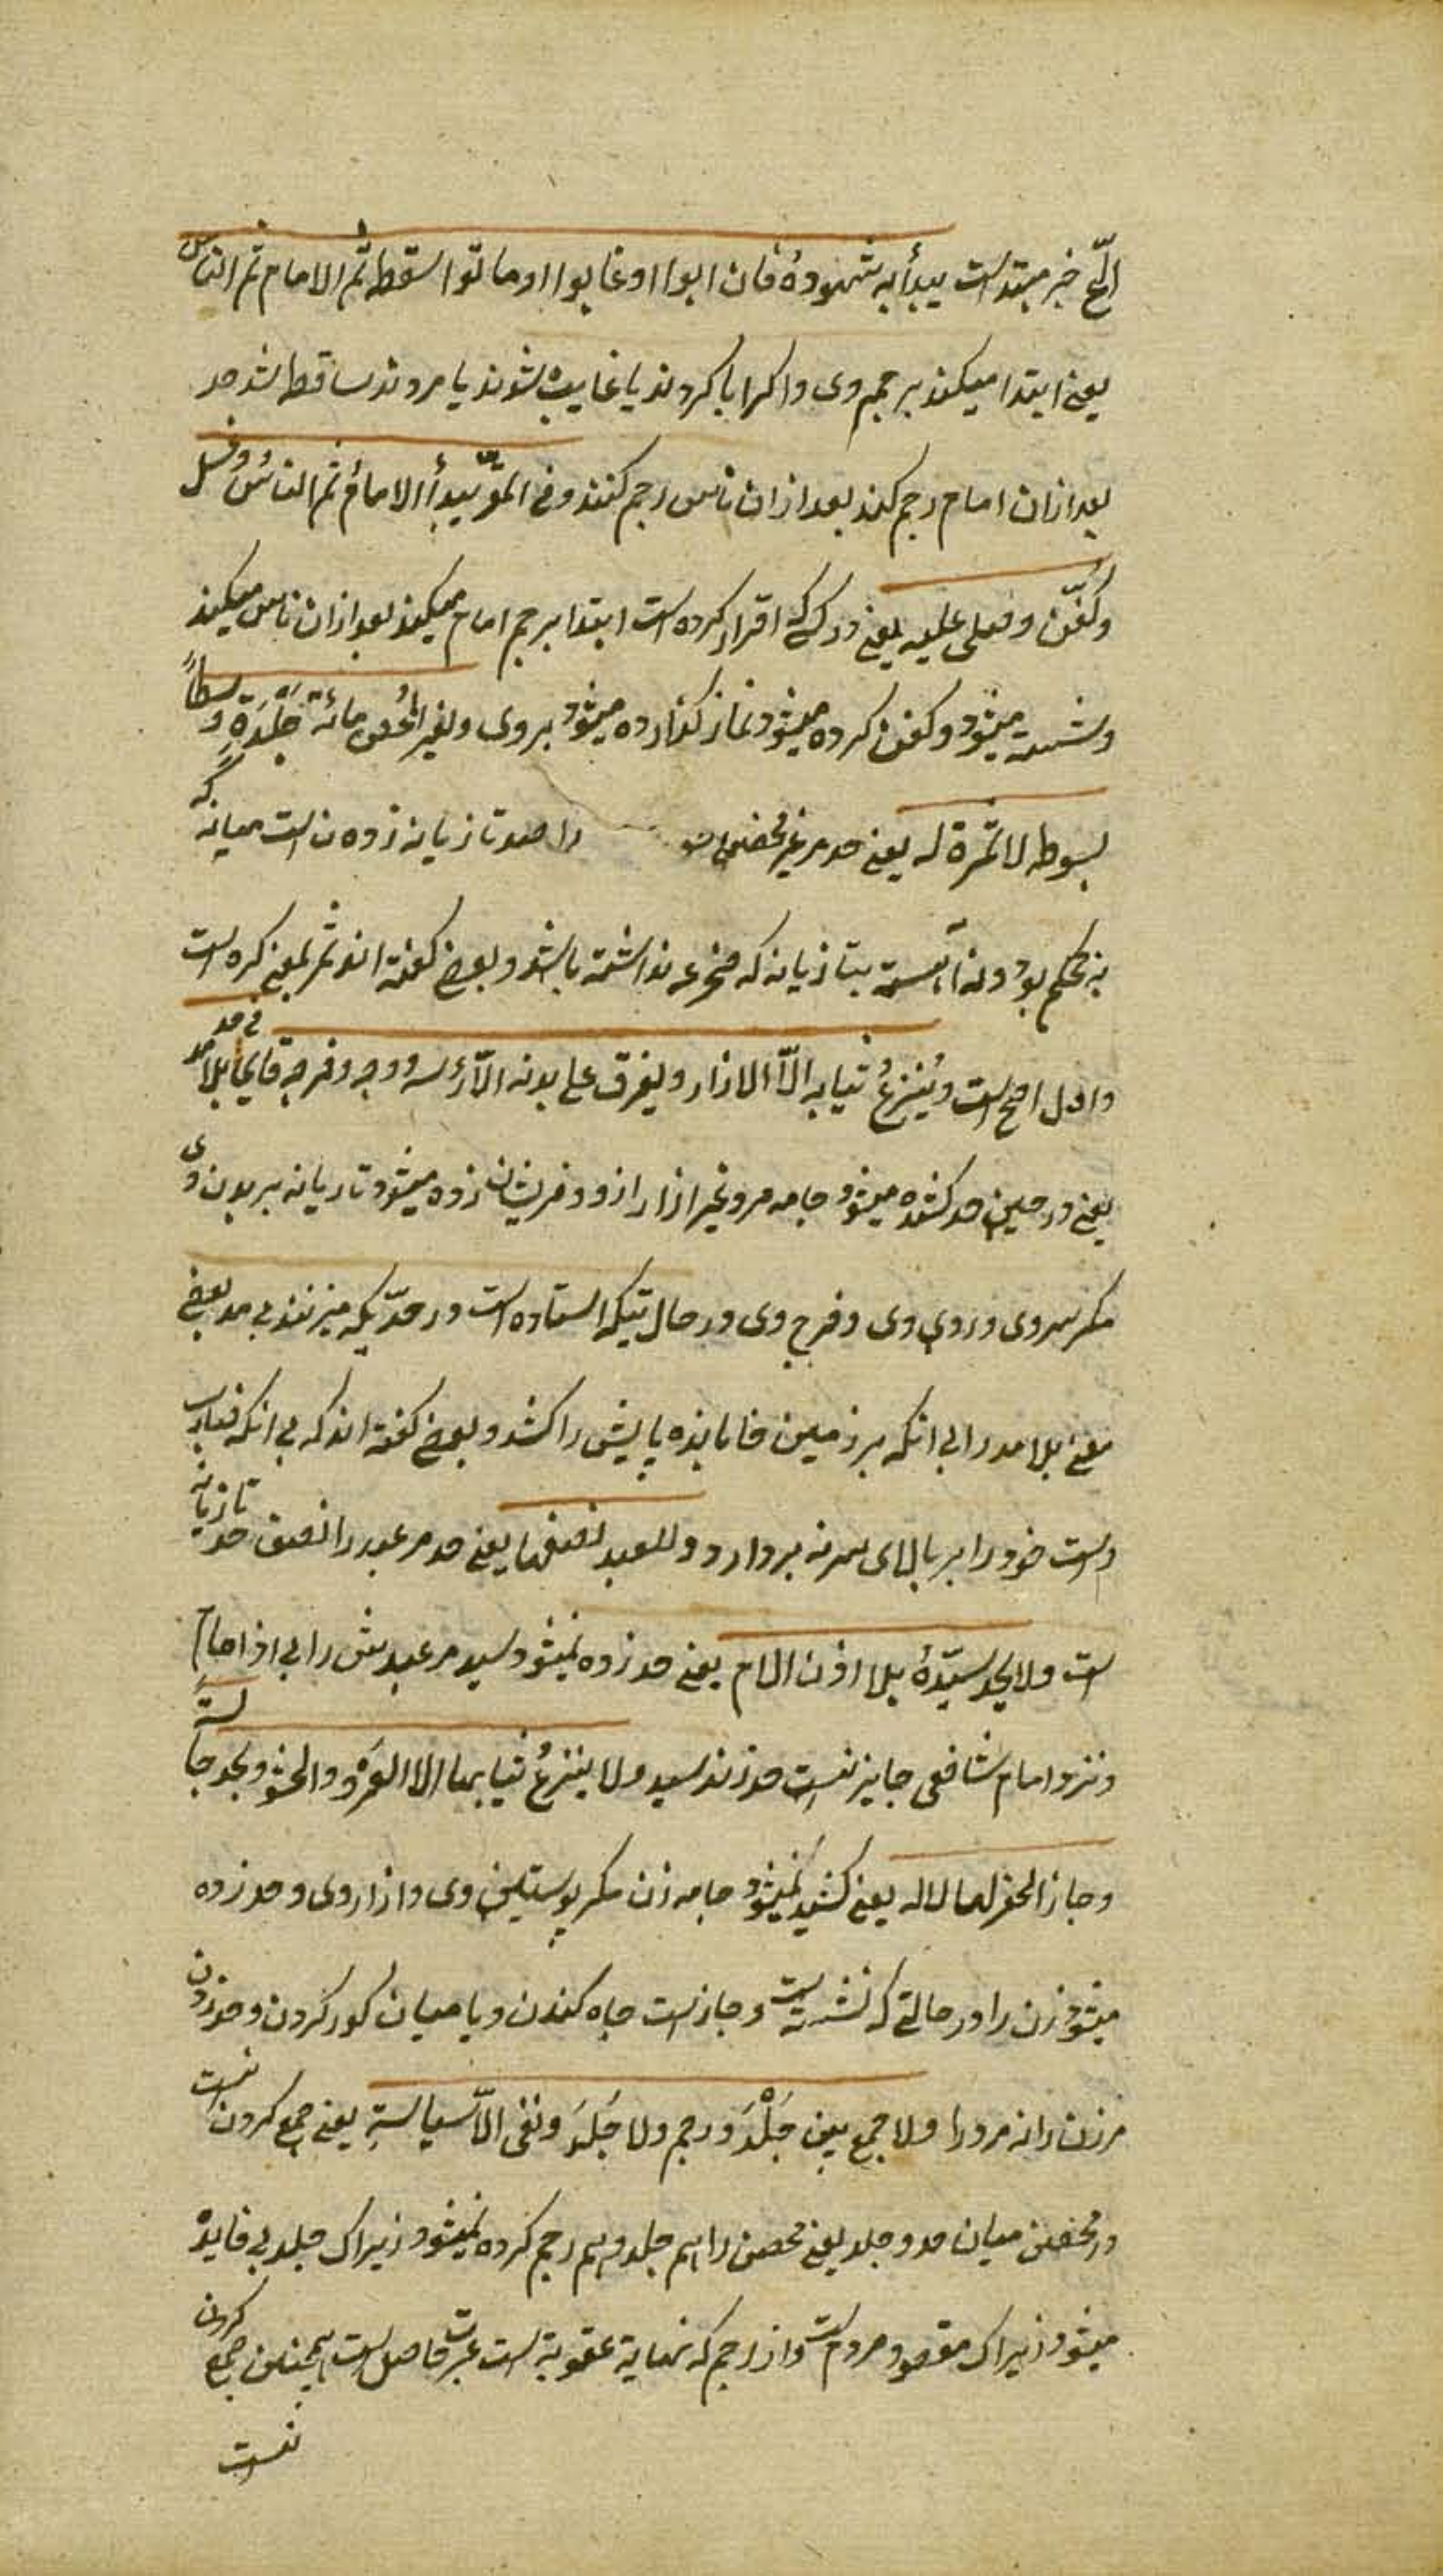 الخ خبر مبتداست یبدأ به شهوده فان ابوا او غابوا او ماتوا سقط ثم الامام ثم الناس
یعنی ابتدا میکند برجم وی و اکر ابا کردند یا غایب شوند یا مردند ساقط شد حد
بعد ازان امام رجم کند بعد ازان ناس رجم کنند و فی المقر یبدأ الامام ثم الناس وغسل
وکفّن وصلی علیه یعنی در کسی که اقرار کرده است ابتدا برجم امام میکند بعد ازان ناس میکند
و شسته میشود و کفن کرده میشود و نماز کذارده میشود بروی و لغیر المحصن مائة جلدة وسطاً
بسوط لا ثمرة له یعنی حد مر غیر محصن را صد تازیانه زدن است میانه که
نه محکم بود و نه آهسته بتازیانه که نداشته باشد و بعضی کفته اند ثمر بمعنی کره است
و اول اصح است و یُنزعُ ثیابه الّا الازار و یفرق علی بدنه الّا رأسه و وجه و فرجه قایما فی حد بلا مد
یعنی در حین حد کشیده میشود جامه مرد غیر ازار ازو و فریشان زده میشود تازیانه بر بدن وی
مکر سر وی و روی وی و فرج وی در حالتیکه استاده است در حدّیکه میزنند بی مد بعضی
معنی بلا مد را بی انکه بر زمین خابانیده پایش را کشد و بعضی کفته اند که بی انکه
دست خود را بر بالای سر نه بردارد و للعبد نصفها یعنی حد مر عبد را نصف حد تازیانه
است و لا یحد سیّدهُ بلا اذن الامام یعنی حد زده نمیشود سید مر عبدش را بی اذن امام
و نزد امام شافعی جایز نیست حد زند سید و لا ینزعُ ثیابها الا الفرو و الحشو و تحد جالسة
و جاز الحفر لها لا له یعنی کشیده نمیشود جامه زن مکر پوستین وی و ازار وی و حد زده
میشود زن را در حالتی که نشسته است و جاز است چاه کندن و یا میان کور کردن و حد زدن
مر زن را نه مرد را و لا جمع بین جَلْدَ و رجم و لا جَلدَ و نفی الّا سیاسة یعنی جمع کردن نیست
در محصن میان حد و جلد یعنی محصن را هم جلد و هم رجم کرده نمیشود زیراک جلد بی فایده
میشود زیراک مقصود مردم است و از رجم که نهایة عقوبة است عبرت حاصل است همچنین جمع کردن
نیست